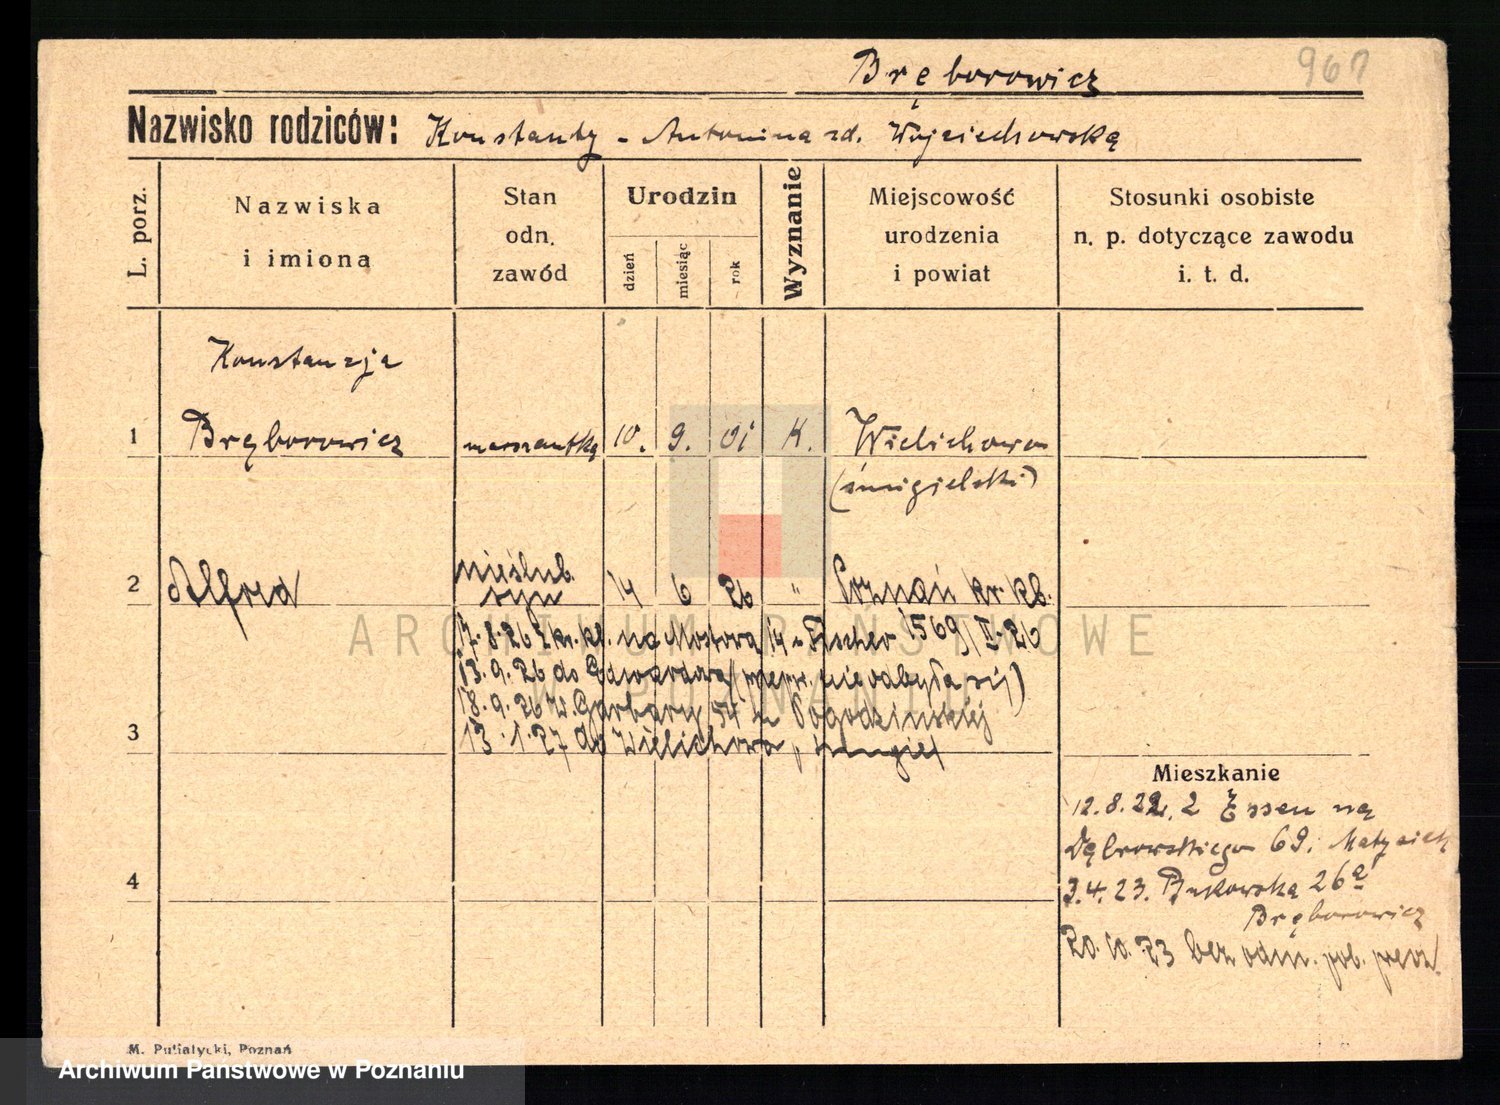 Bręborowicz
967
Nazwisko rodziców: Konstanty - Antonina zd. Wojciechowska
L. porz.
Nazwiska i imiona
Stan odn. zawód
Urodzin
dzień
miesiąc
rok
Wyznanie
Miejscowość urodzenia i powiat
Stosunki osobiste n. p. dotyczące zawodu i. t. d.
Konstancja
1 Bręborowicz 10. 9. 01 K. Wielichowo
(śmigielski)
nieślub.
2 Alfred syn 14 6 26 " Poznań kr. kb.
17.8.26 kr. kl. na Mostowa 14 Fischer 1569/II.26
13.9.26 do Edwardowa nie odbyła się)
18.9.26 W. Garbary 54 u Pogodzińskiej
3 13.1.27 do Wielichowa, śmigiel
Mieszkanie
12.8.22. z Essen na
Dąbrowskiego 69. Matysiak
4
3.4.23. Bukowska 26a
Bręborowicz
20.10.23 bez odm.
M. Putiatycki, Poznań
ARCHIWUM PAŃSTWOWE
W POZNANIU
Archiwum Państwowe w Poznaniu